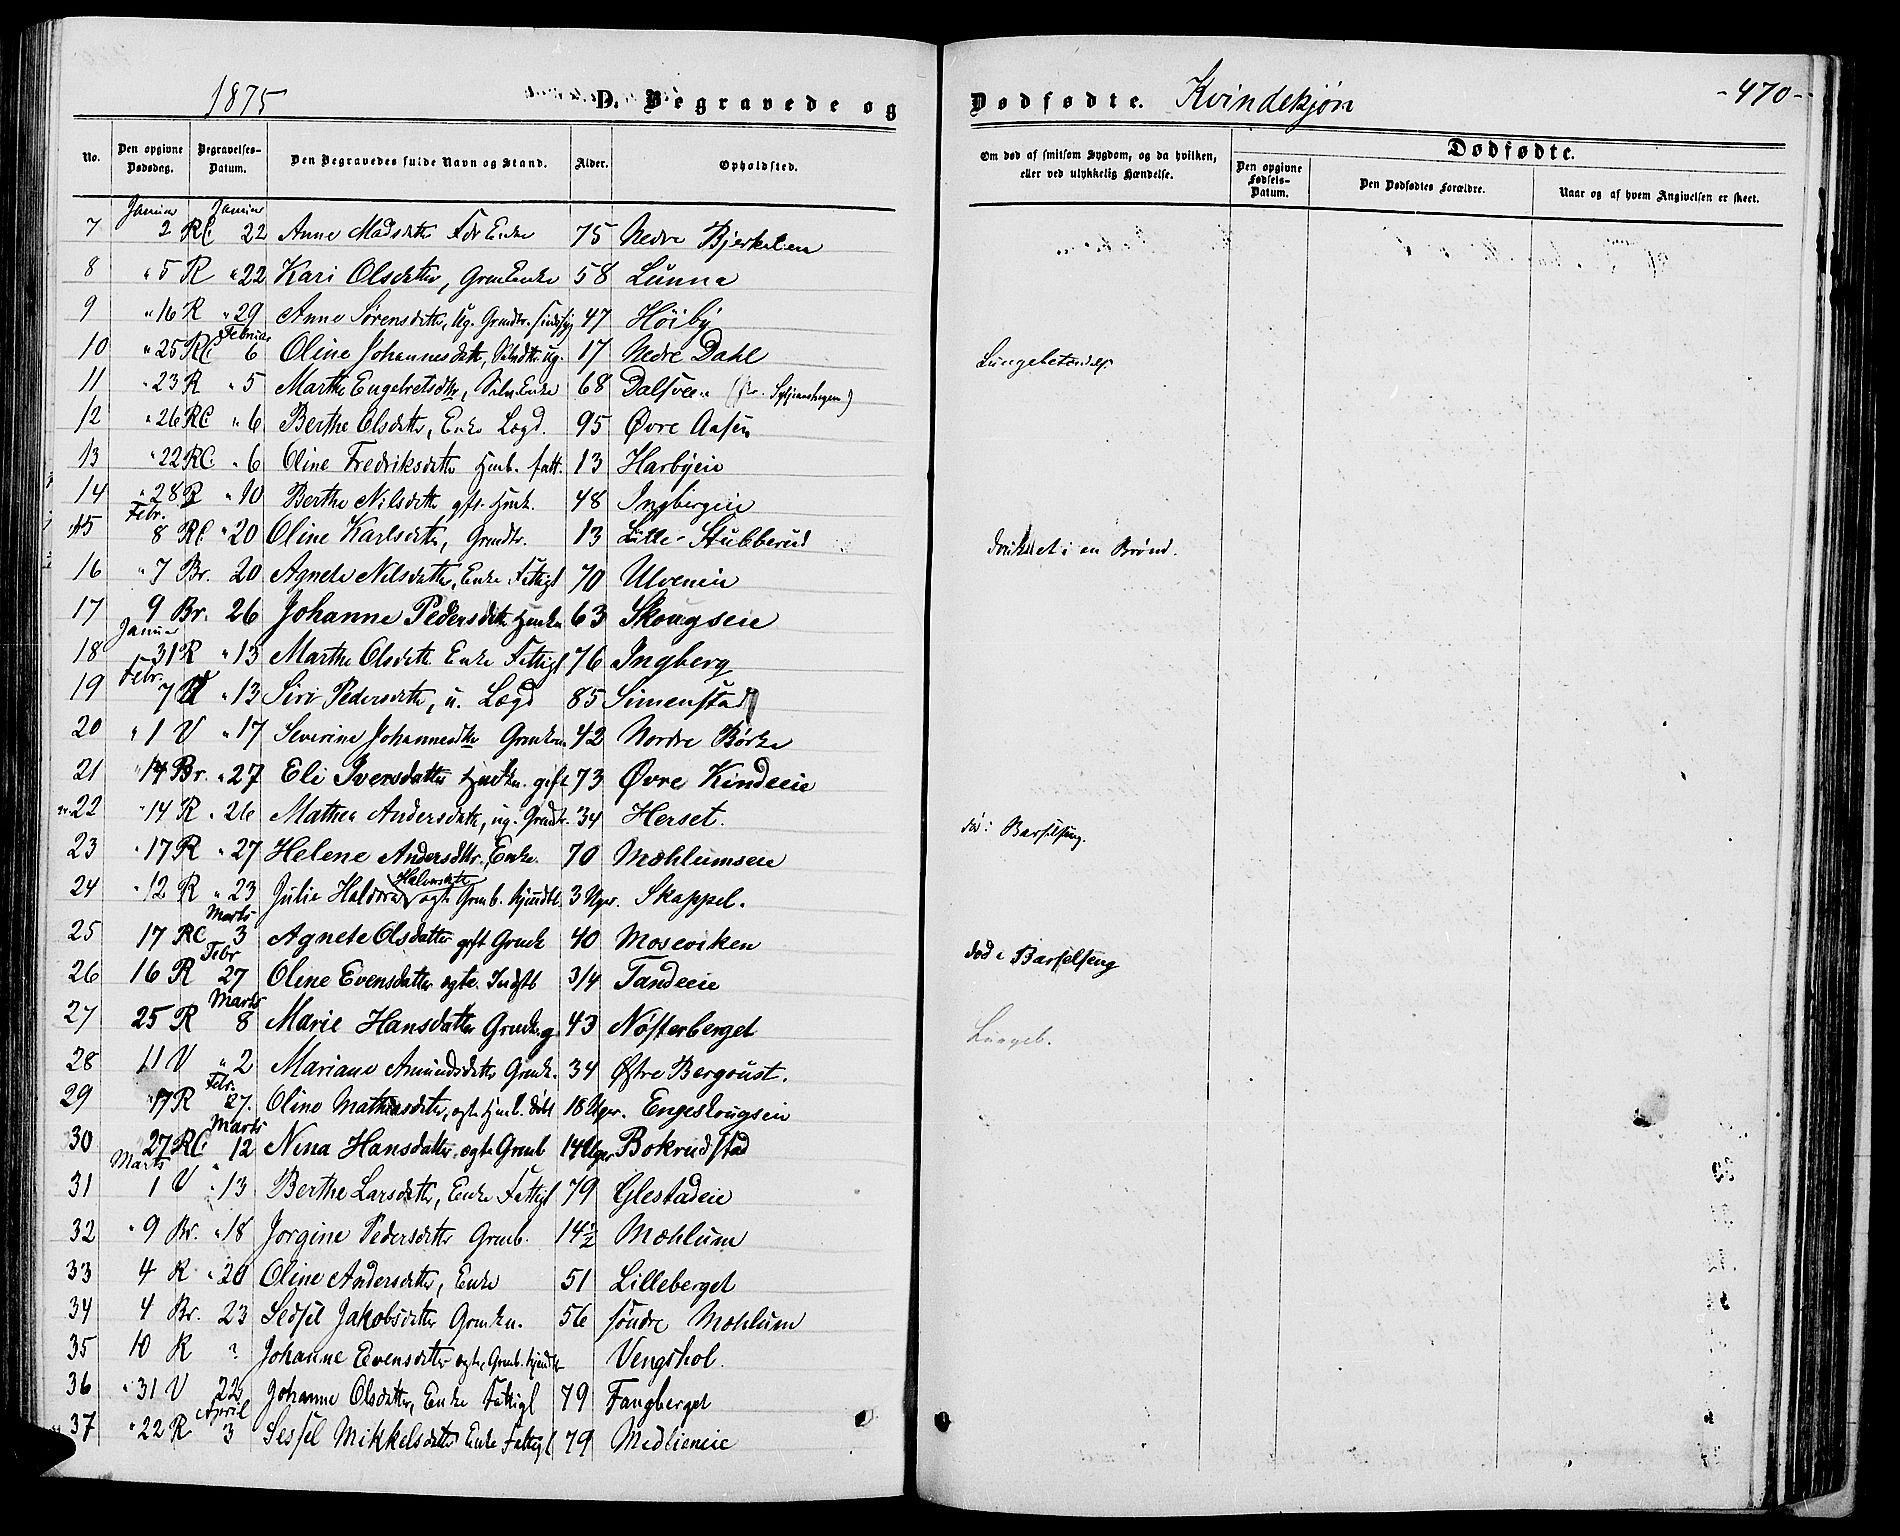 1875 D. Begravede og Dødfødte. Kvindekjøn -470-
No. Den opgivne Dødsdag. Begravelses-Datum. Den Begravedes fulde Navn og Stand. Alder. Opholdsted. Om død af smitsom Sygdom, og da hvilken, eller ved ulykkelig Hændelse. Dødfødte. Den opgivne Fødsels-Datum. Den Dødfødtes Forældre. Naar og af hvem Angivelsen er skeet.
Januar Januar
7 2 RC 22 Anne Madsdatter Fdr Enke 75 Nedre Bjerkelien
8 " 5 R " 22 Kari Olsdatter, Grmd Enke 58 Lunna
9 " 16 R " 29 Anne Sørensdatter, ug. Grmdtr. sindssyg 47 Höiby
Februar
10 " 25 RC 6 Oline Johannesdatter, ug. 17 Nedre Dahl Lungebetændelse
11 " 23 R " 5 Marthe Engebretsdtr, Enke 68 Dalsveen
12 " 26 RC " 6 Berthe Olsdatter, Enke Lægd. 95 Øvre Aasen
13 " 22 RC " 6 Oline Fredriksdatter Hmb. fatt. 13 Harbyeie
14 " 28 R " 10 Berthe Nilsdatter gft. Hmk. 48 Ingbergeie
Febr.
15 8 RC " 20 Oline Karlsdatter, Grmdtr. 13 Lille-Stubberud druknet i en Brønd.
16 " 7 Br. 20 Agnete Nilsdatter, Enke Fattigl 70 Ulveneie
17 9 Br. 26 Johanne Pedersdatter 63 Skougseie
Januar
18 31 R " 13 Marthe Olsdatter Enke Fattigl 76 Ingberg
Febr.
19 7 V " 13 Siri Pedersdatter, u. Lægd 85 Simenstad
20 " 1 V " 17 Severine Johannesdtr 42 Nordre Börke
21 " 14 Br. " 27 Eli Iversdatter gift 73 Øvre Kindeeie
22 " 14 R " 26 Mathea Andersdatter, ug. Grmdtr. 34 Herset. død i Barselseng.
23 " 17 R " 27 Helene Andersdtr. Enke. 70 Mæhlumseie
Halvorsdatter
24 " 12 R " 23 Julie ægte Grmb. 3 Uger. Skappel.
Marts
25 17 RC 3 Agnete Olsdatter gift 40 Moseviken död i Barselseng
Febr
26 16 R 27 Oline Evensdatter ægte. Indstb 3/4 Tandeeie
Marts
27 25 R 8 Marie Hansdatter 43 Nösterberget Lungeb.
28 11 V " 2 Mariane Amundsdatter 34 Østre Bergoust.
Febr.
29 " 17 R 27. Oline Mathiasdatter, ægte Hmb. 18 Uger. Engeskougseie
Marts
30 27 RC 12 Nina Hansdatter ægte Grmb 14 Uger Bokrudstad
Marts
31 1 V " 13 Berthe Larsdatter, Enke Fattigl 79 Glestadeie
32 " 9 Br. " 18 Jorgine Pedersdatter Grmb. 14 1/2 Mæhlum
33 4 R " 20 Oline Andersdatter, Enke 51 Lilleberget
34 4 Br. 23 Sedsel Jakobsdatter 56 söndre Mæhlum
35 10 R ? Johanne Evensdatter ægte Grmb. Vengshol.
36 " 31 V 22 Johanne Olsdatter, Enke Fattigl 79 Fangberget
April
37 " 22 R 3 Sessel Mikkelsdatter Enke Fattigl 79 Medlieneie